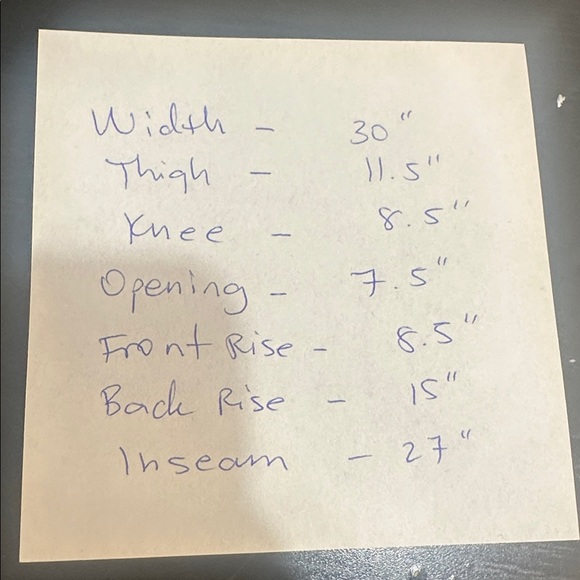 Width - 30"
Thigh - 11.5"
Knee - 8.5"
Opening - 7.5"
Front Rise - 8.5"
Back Rise - 15"
Inseam - 27"